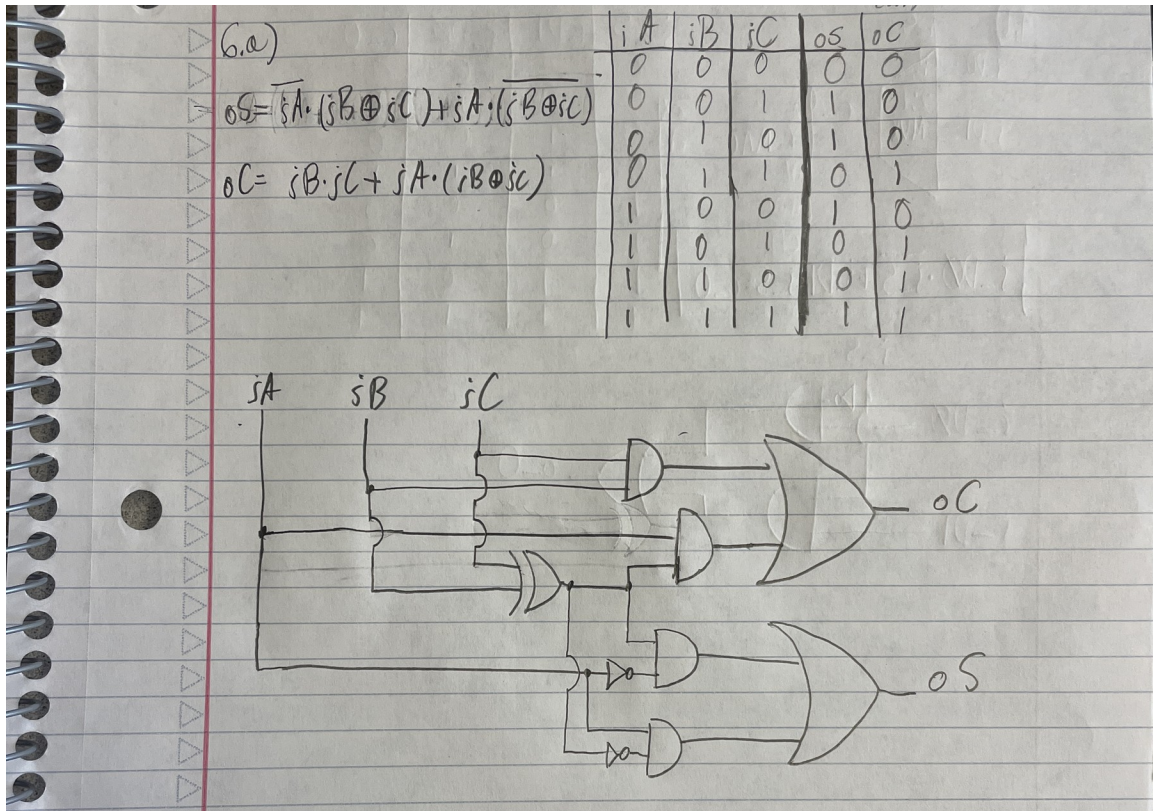 6.a)
oS= i̅A̅·(iB⊕iC)+iA·(i̅B̅⊕̅i̅C̅)
oC= iB·iC+ iA·(iB⊕iC)
iA iB iC oS oC
0 0 0 0 0
0 0 1 1 0
0 1 0 1 0
0 1 1 0 1
1 0 0 1 0
1 0 1 0 1
1 1 0 0 1
1 1 1 1 1
iA iB iC
oC
oS